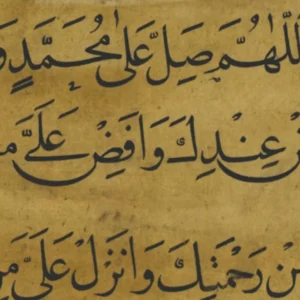 اللّٰهُمَّ صَلِّ عَلٰى مُحَمَّدٍ
عِنْدِكَ وَاَفِضْ عَلَيَّ
رَحْمَتِكَ وَاَنْزِلْ عَلَيَّ